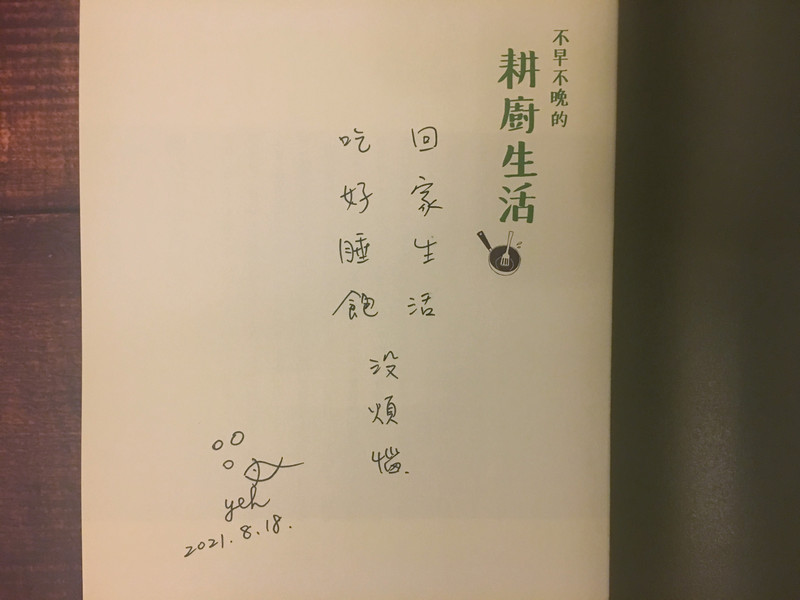 不早不晚的
耕廚生活
回家生活
吃好睡飽
沒煩惱.
yeh
2021.8.18.